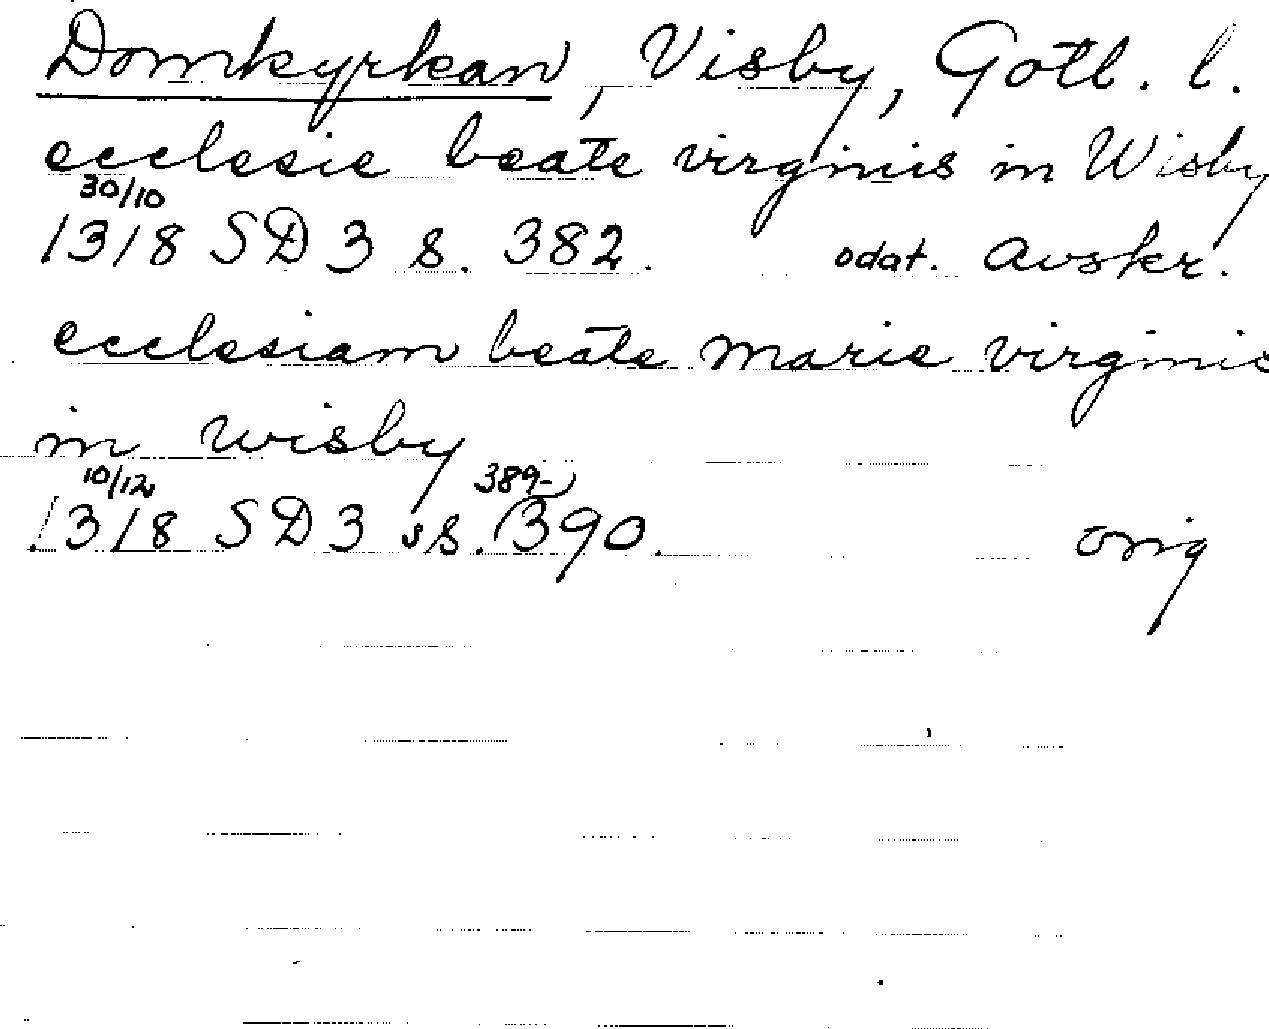 Domkyrkan, Visby, Gotl. l.
ecclesie beate virginis in Wisby
30/10
1318 SD 3 s. 382. odat. Avskr.
ecclesiam beate Marie virginis
in wisby
10/12 389-
1318 SD 3 ss. 390. orig